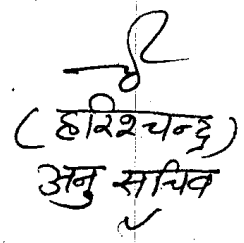 (हरिश्चन्द्र)
अनु सचिव